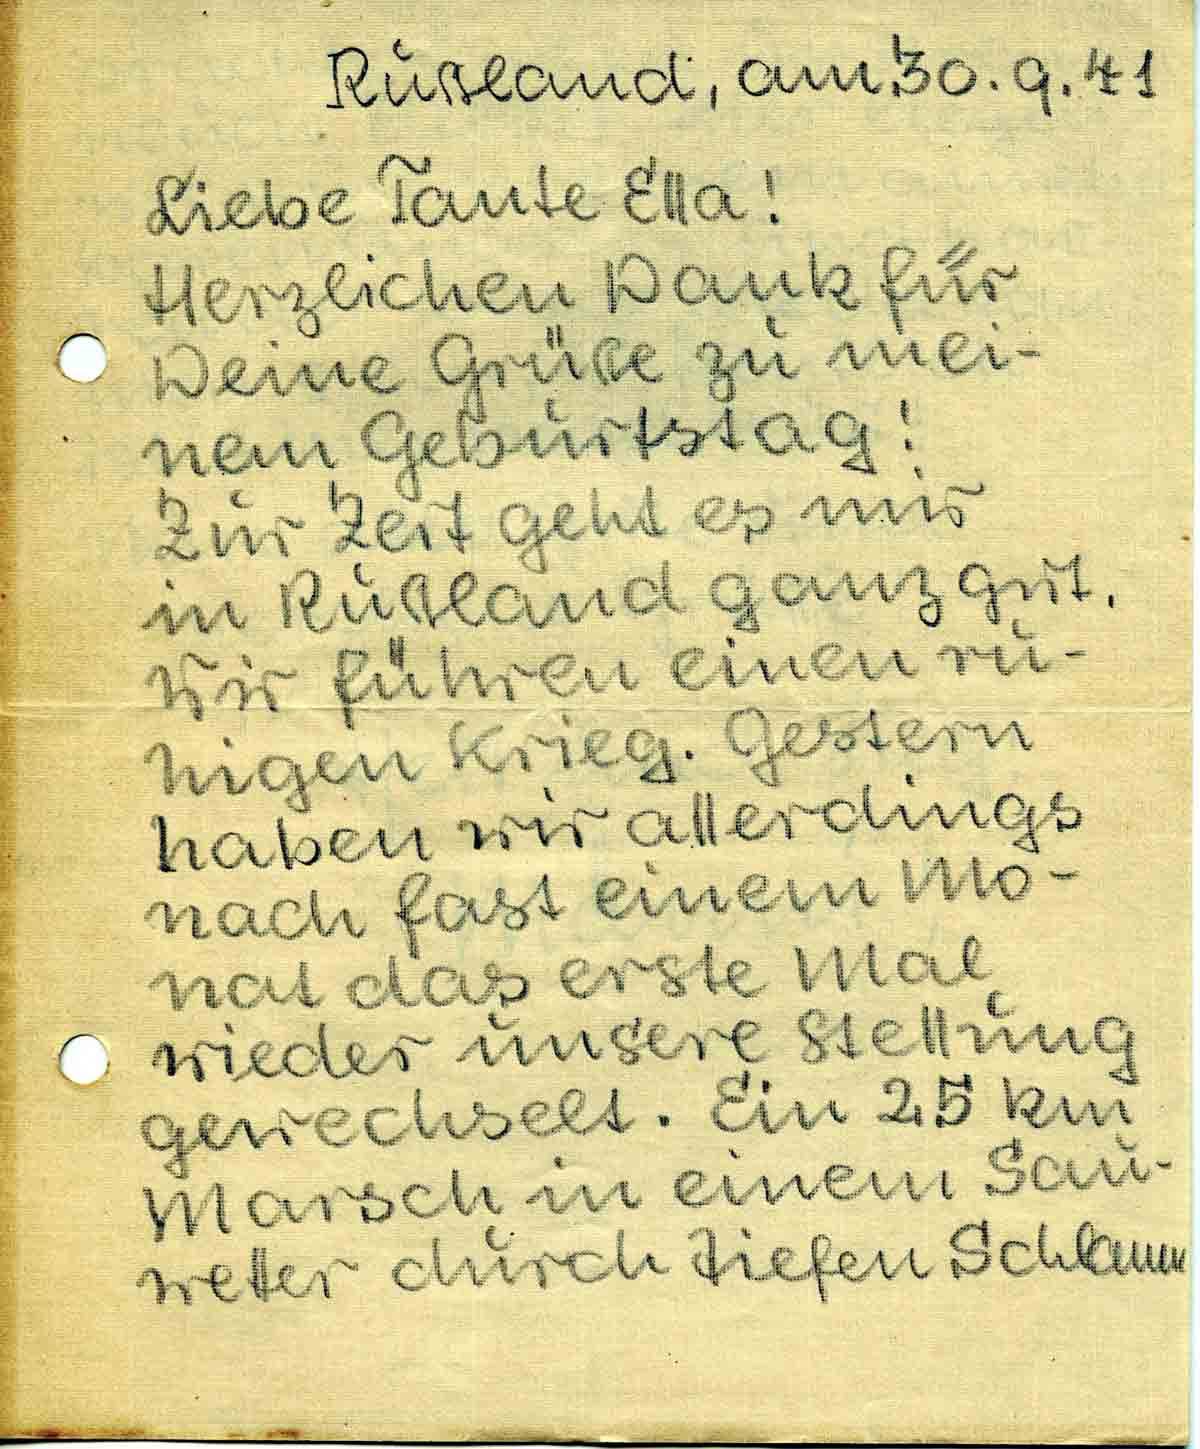 Rußland, am 30. 9. 41
Liebe Tante Ella!
Herzlichen Dank für
Deine Grüße zu mei-
nem Geburtstag!
Zur Zeit geht es mir
in Rußland ganz gut.
Wir führen einen ru-
higen Krieg. Gestern
haben wir allerdings
nach fast einem Mo-
nat das erste Mal
wieder unsere Stellung
gewechselt. Ein 25 km
Marsch in einem Sau-
wetter durch tiefen Schlamm